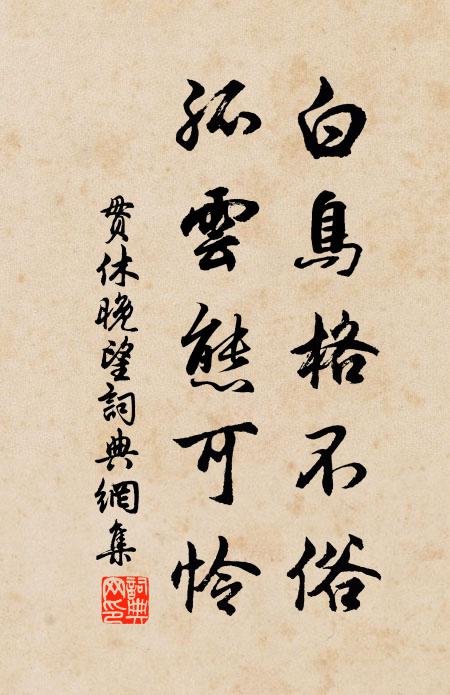 白鳥格不俗
孤雲態可怜
貫休晚望詞典網集
詞典
网印